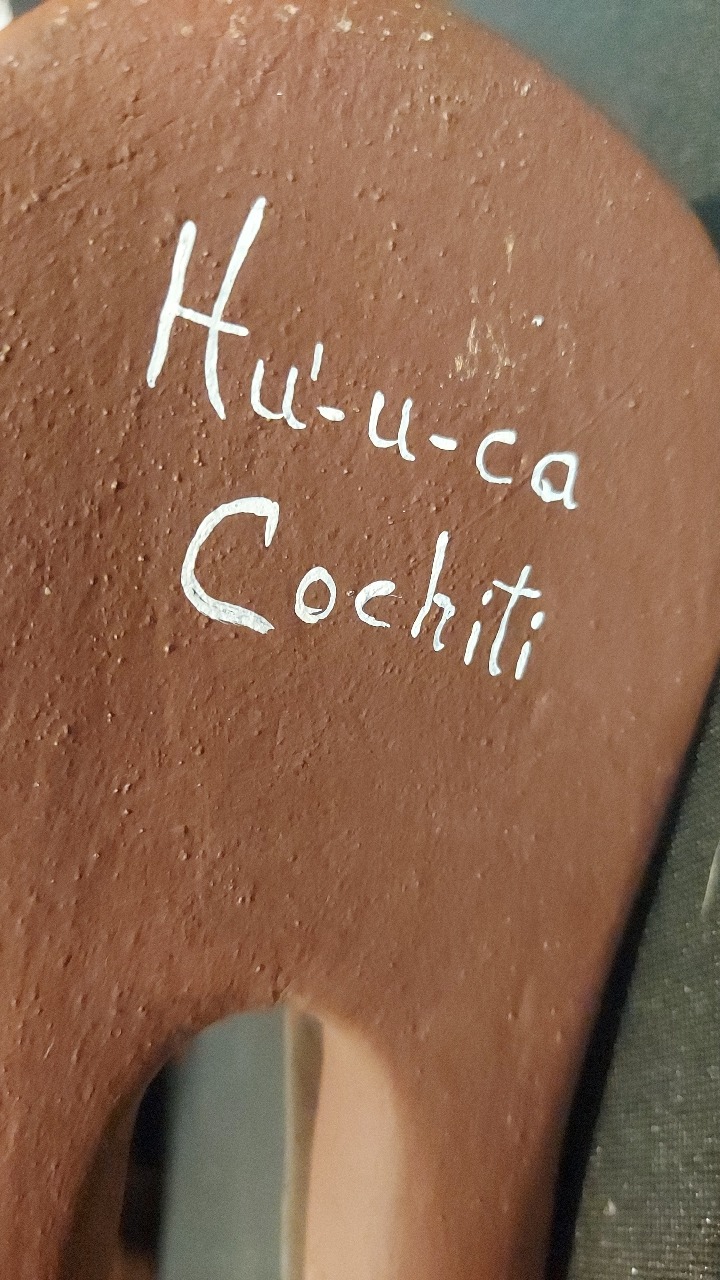 Hu'-u-ca
Cochiti